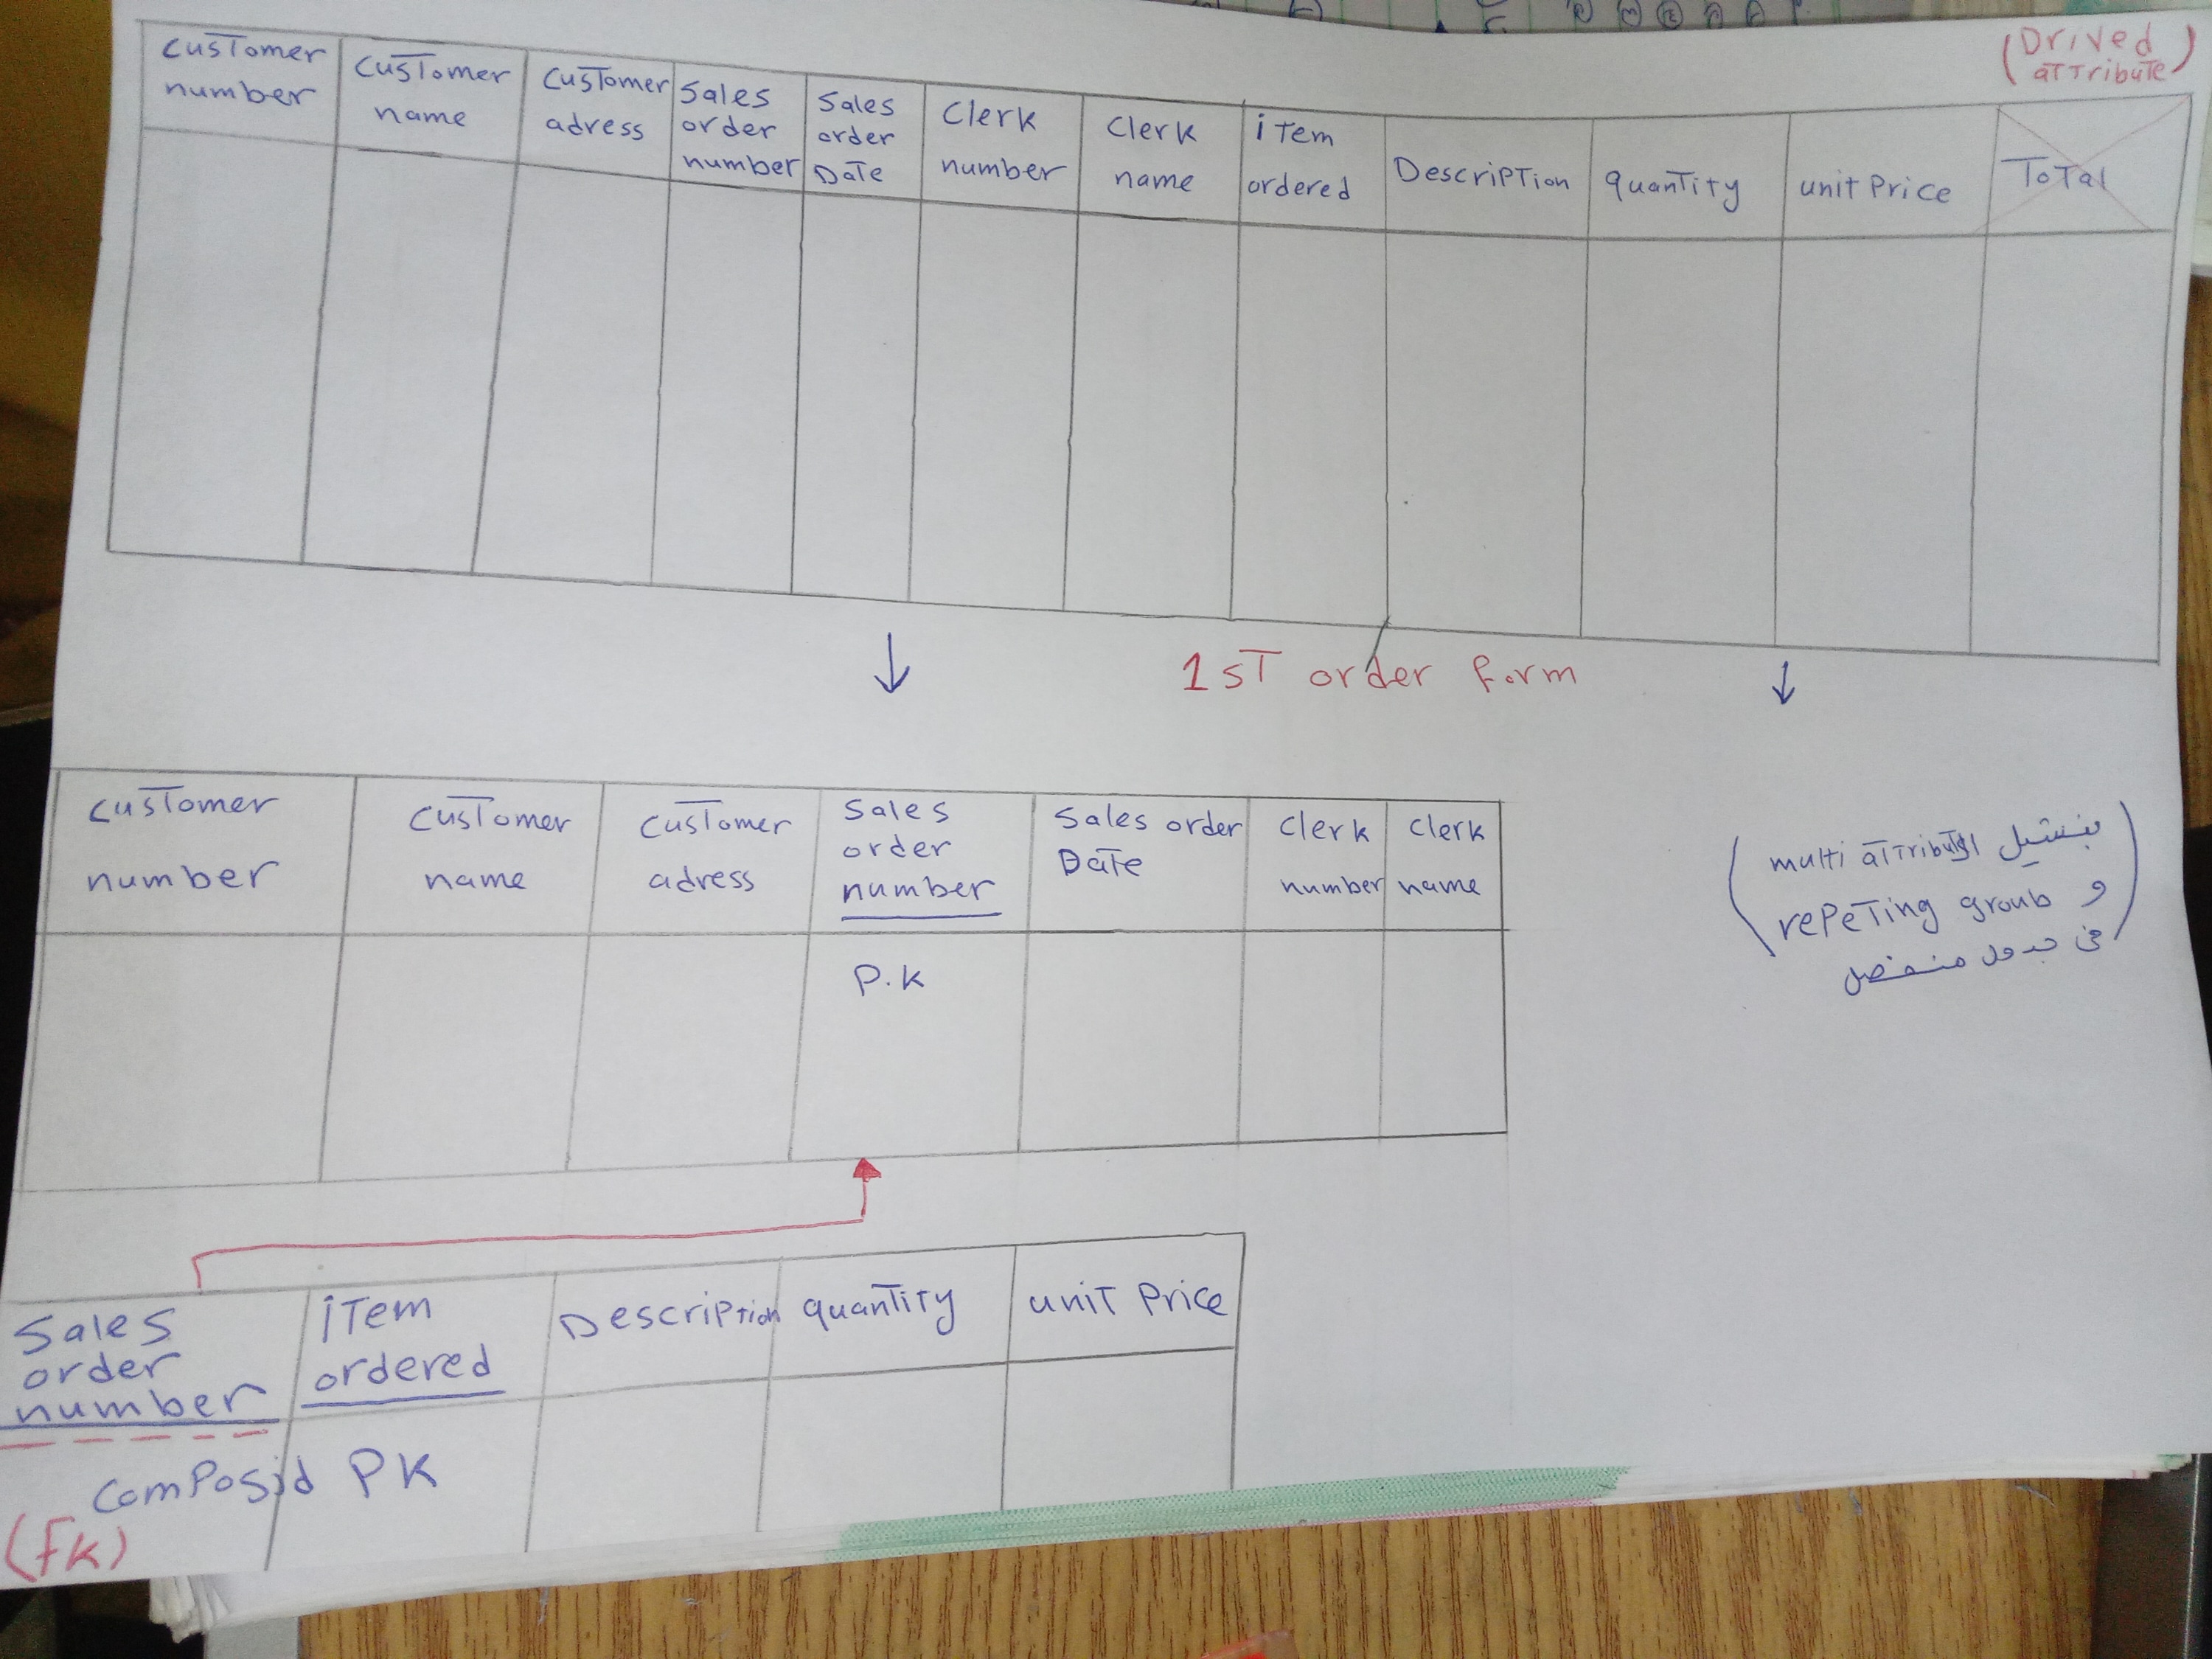 (Drived
attribute)
customer
number
customer
name
customer
adress
Sales
order
number
Sales
order
Date
Clerk
number
Clerk
name
item
ordered
Description
quantity
unit Price
Total
1st order form
customer
number
customer
name
customer
adress
Sales
order
number
Sales order
Date
Clerk
number
Clerk
name
P.K
بنستيل ال multi attribute
و repeting groub
في جدول منفصل
Sales
order
number
item
ordered
Description
quantity
unit Price
composid PK
(FK)